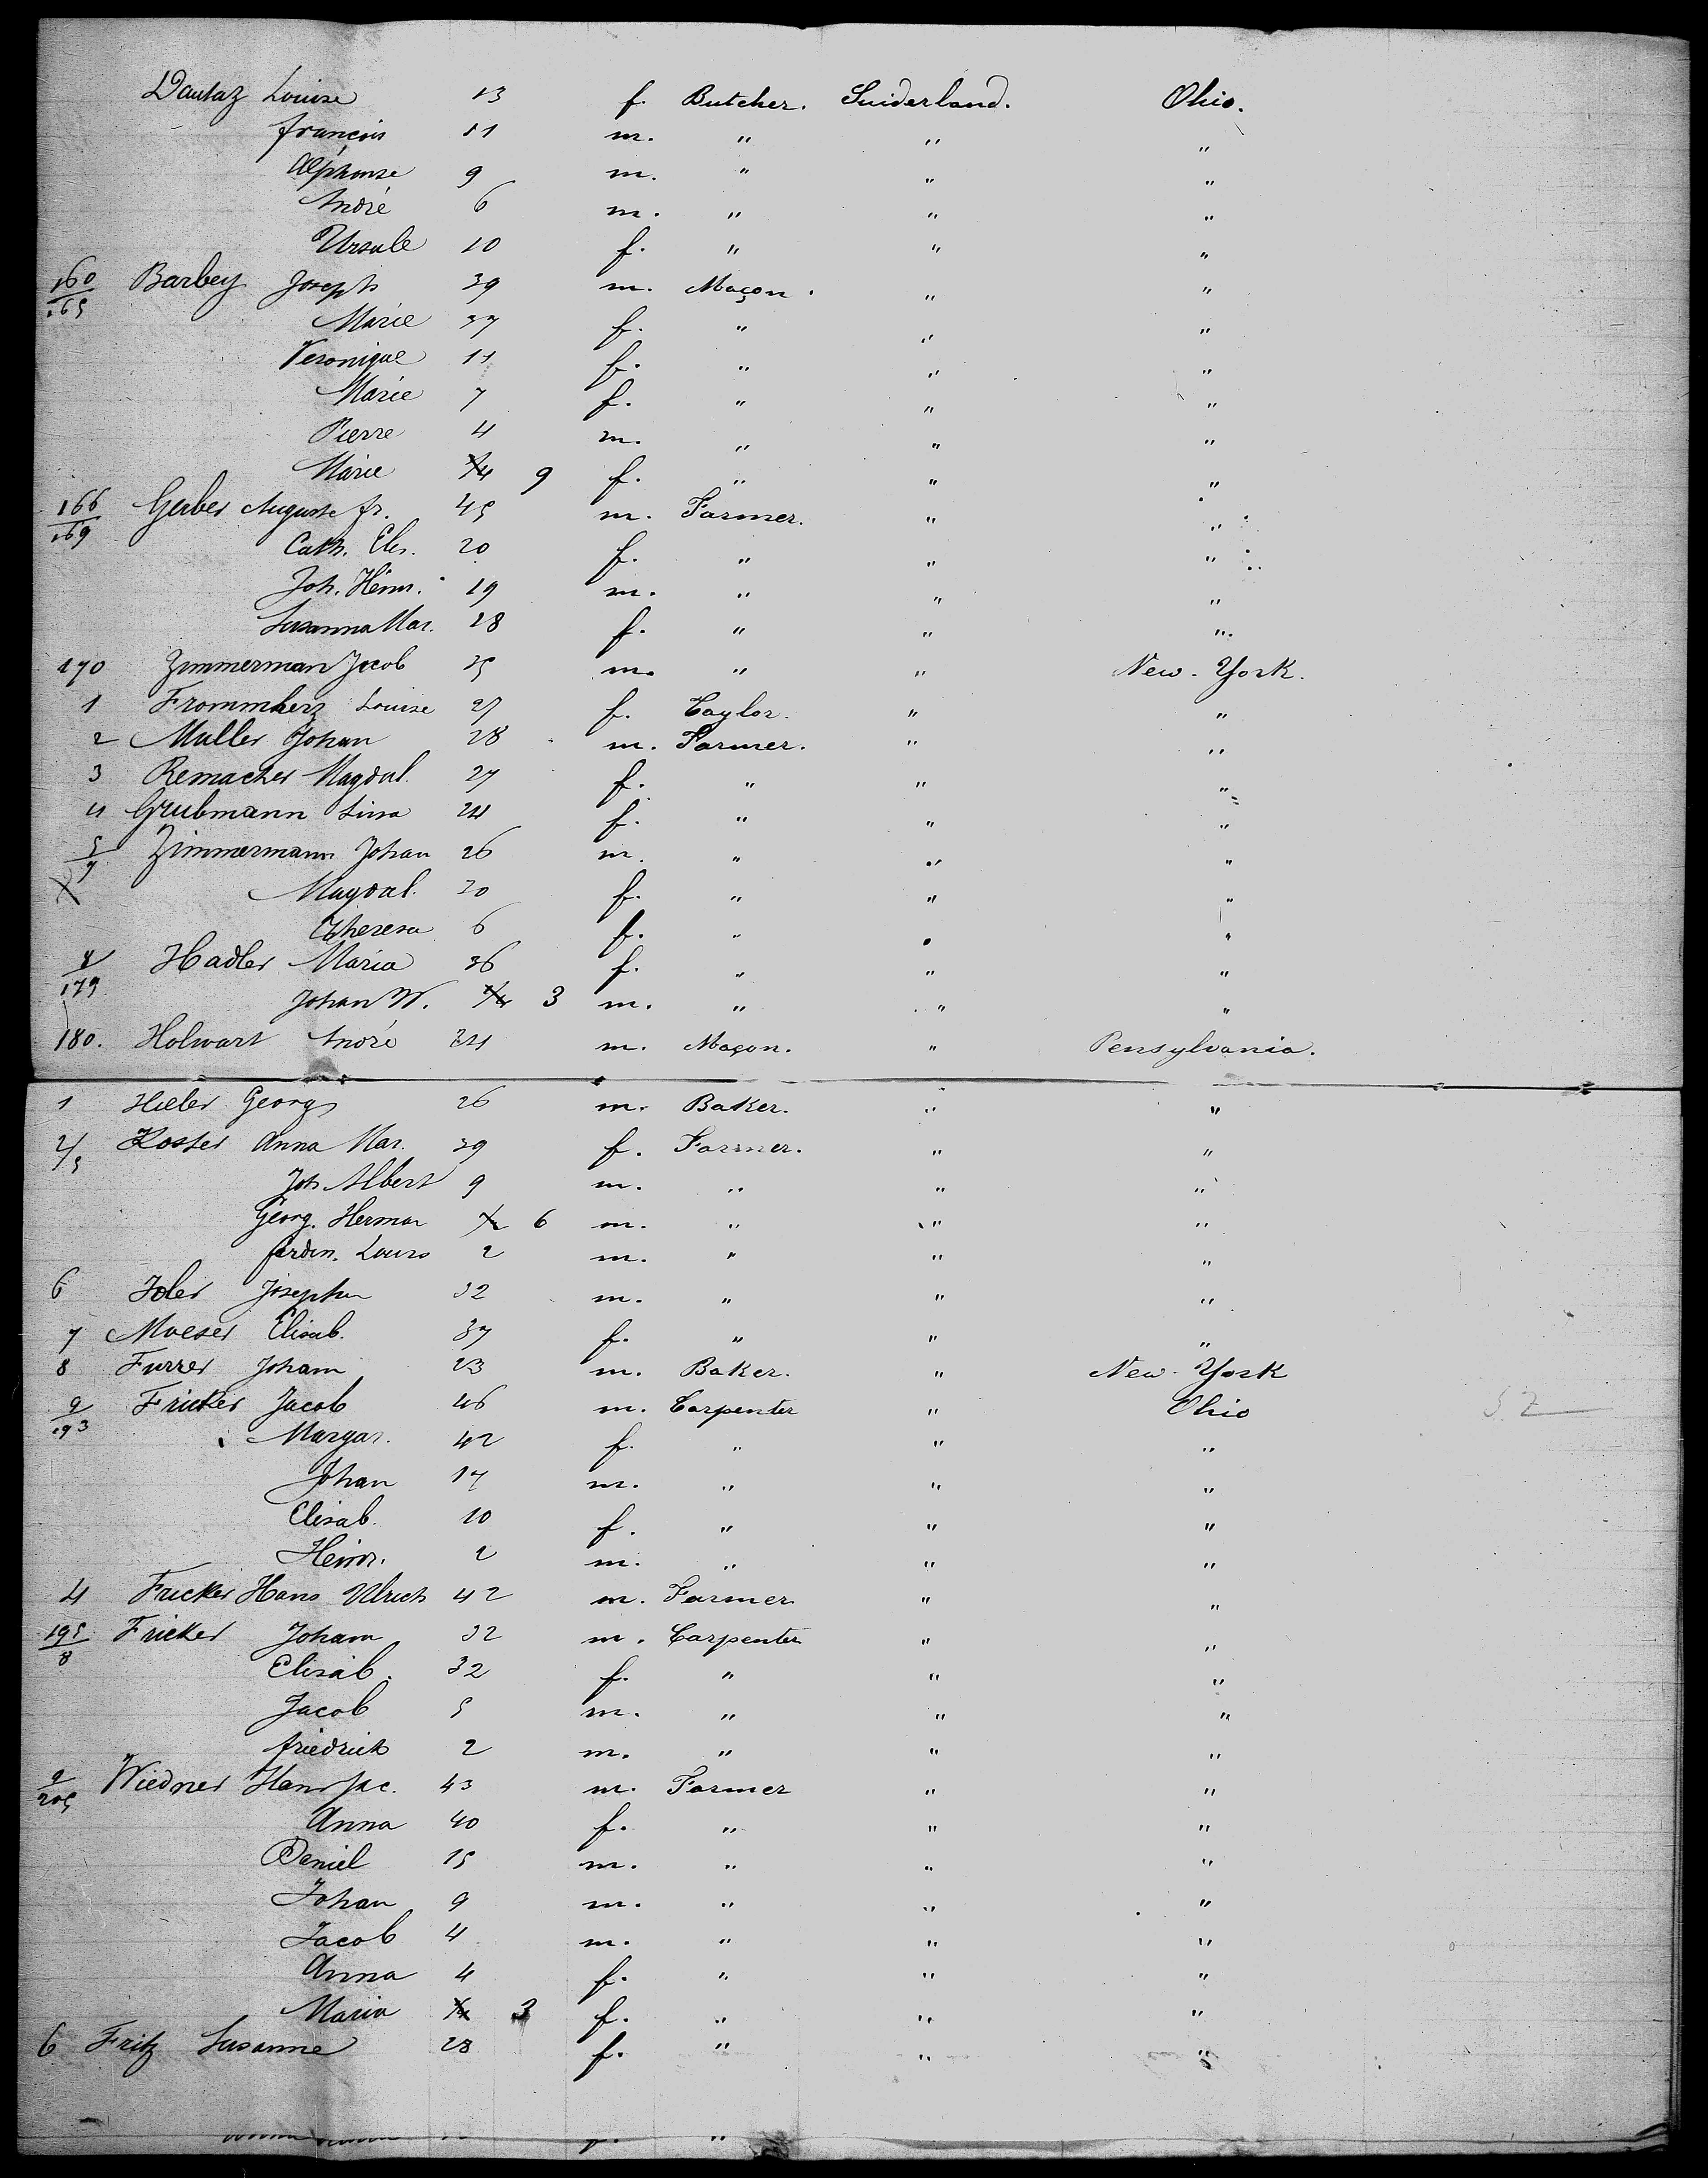 Dautaz Louise 13 f. Butcher. Suiderland. Ohio.
françois 11 m. " " "
Alphonse 9 m. " " "
André 6 m. " " "
Ursule 10 f. " " "
160/165 Barbey Joseph 39 m. Maçon. " "
Marie 37 f. " " "
Veronique 11 f. " " "
Marie 7 f. " " "
Pierre 4 m. " " "
Marie 9 f. " " "
166/169 Gerber Auguste fr. 45 m. Farmer. " "
Cath. Elis. 20 f. " " "
Joh. Heinr. 19 m. " " "
Susanna Mar. 28 f. " " "
170 Zimmerman Jacob 25 m. " " New-York.
1 Frommherz Louise 27 f. Taylor. " "
2 Muller Johan 28 m. Farmer. " "
3 Remacher Magdal. 27 f. " " "
4 Grubmann Lina 24 f. " " "
5/7 Zimmermann Johan 26 m. " " "
Magdal. 30 f. " " "
Theresa 6 f. " " "
8/179 Hadler Maria 36 f. " " "
Johan W. 3 m. " " "
180. Holwart André 24 m. Maçon. " Pensylvania.
1 Hieler Georg 26 m. Baker. " "
2/5 Koster Anna Mar. 39 f. Farmer. " "
Joh. Albert 9 m. " " "
Georg. Herman 6 m. " " "
ferdin. Louis 2 m. " " "
6 Idler Josephe 32 m. " " "
7 Moeser Elisab. 37 f. " " "
8 Furrer Johann 23 m. Baker. " New-York
9/193 Fricker Jacob 46 m. Carpenter " Ohio
Margar. 42 f. " " "
Johan 17 m. " " "
Elisab. 10 f. " " "
Heinr. 2 m. " " "
4 Fricker Hans Ulrich 42 m. Farmer " "
195/8 Fricker Johann 32 m. Carpenter " "
Elisab. 32 f. " " "
Jacob 5 m. " " "
friedrich 2 m. " " "
9/205 Wiedner Hans Jac. 43 m. Farmer " "
Anna 40 f. " " "
Daniel 15 m. " " "
Johan 9 m. " " "
Jacob 4 m. " " "
Anna 4 f. " " "
Maria 3 f. " " "
6 Fritz Susanne 28 f. " " "